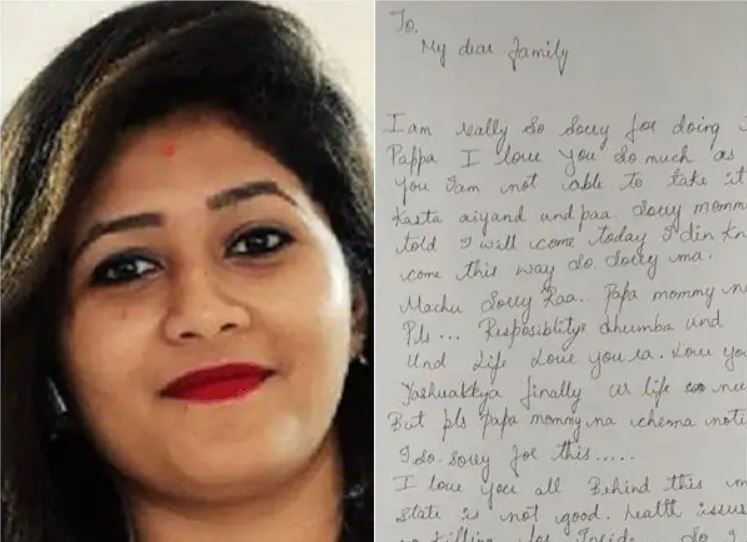 To,
My dear family
I am really so sorry for doing
Pappa I love you so much as
you Iam not able to take it
Kasta aiyand und paa. Sorry momm
told I will come today I din kn
come this way so. Sorry ma.
Machu Sorry Raa.. Papa mommy n
Pls... Resposiblitys dhumba und
Und Life Love you ra. Love yo
Yashuakkya finally ur life so nu
But pls papa mommy na chenna noti
I so. sorry for this.....
I love you all Behind this m
state is not good. health issus
killing Inside So I